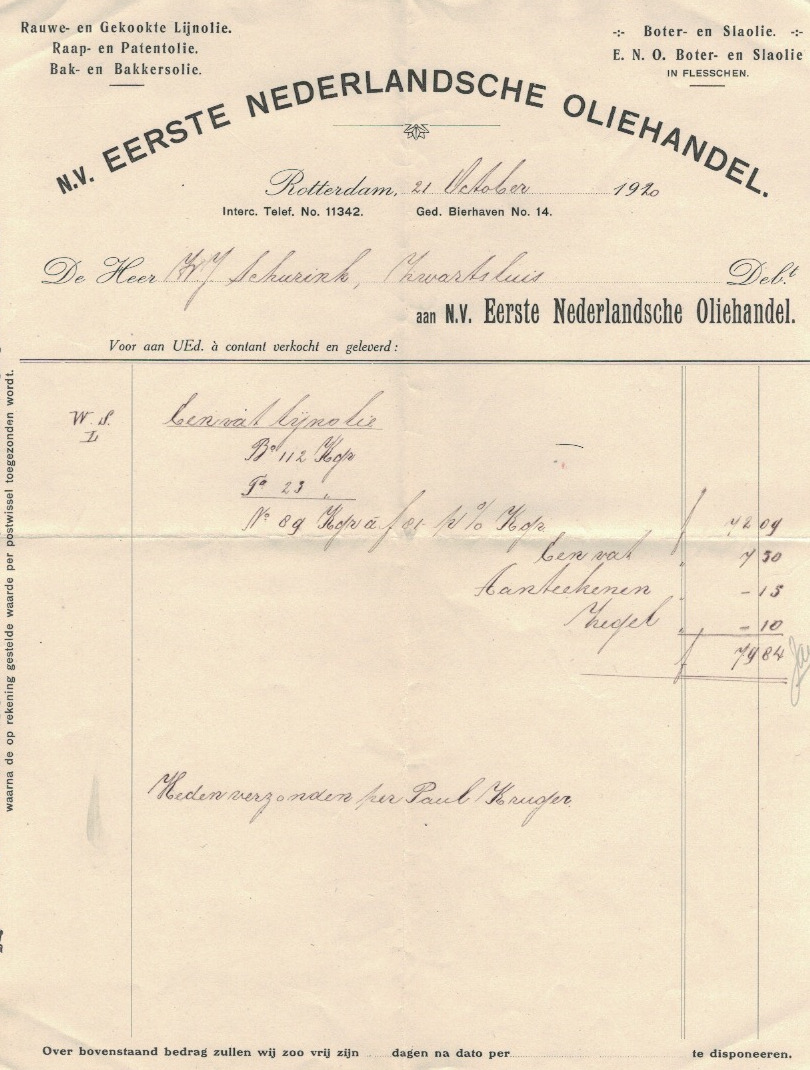 Rauwe- en Gekookte Lijnolie.
Raap- en Patentolie.
Bak- en Bakkersolie.
-:- Boter- en Slaolie. -:-
E. N. O. Boter- en Slaolie
IN FLESSCHEN.
N.V. EERSTE NEDERLANDSCHE OLIEHANDEL.
Rotterdam, 21 October 1920
Interc. Telef. No. 11342. Ged. Bierhaven No. 14.
De Heer W.J Schurink, Zwartsluis Deb.t
aan N.V. Eerste Nederlandsche Oliehandel.
Voor aan UEd. à contant verkocht en geleverd:
waarna de op rekening gestelde waarde per postwissel toegezonden wordt.
W. S.
L
Een vat Lijnolie
Bo 112 Kgr
Ta 23 "
No 89 Kgr à f 81 - p% Kgr f 72 09
Een vat " 7 50
Aanteekenen " - 15
Zegel " - 10
f 79 84
Heden verzonden per Paul Kruger
Over bovenstaand bedrag zullen wij zoo vrij zijn dagen na dato per te disponeeren.